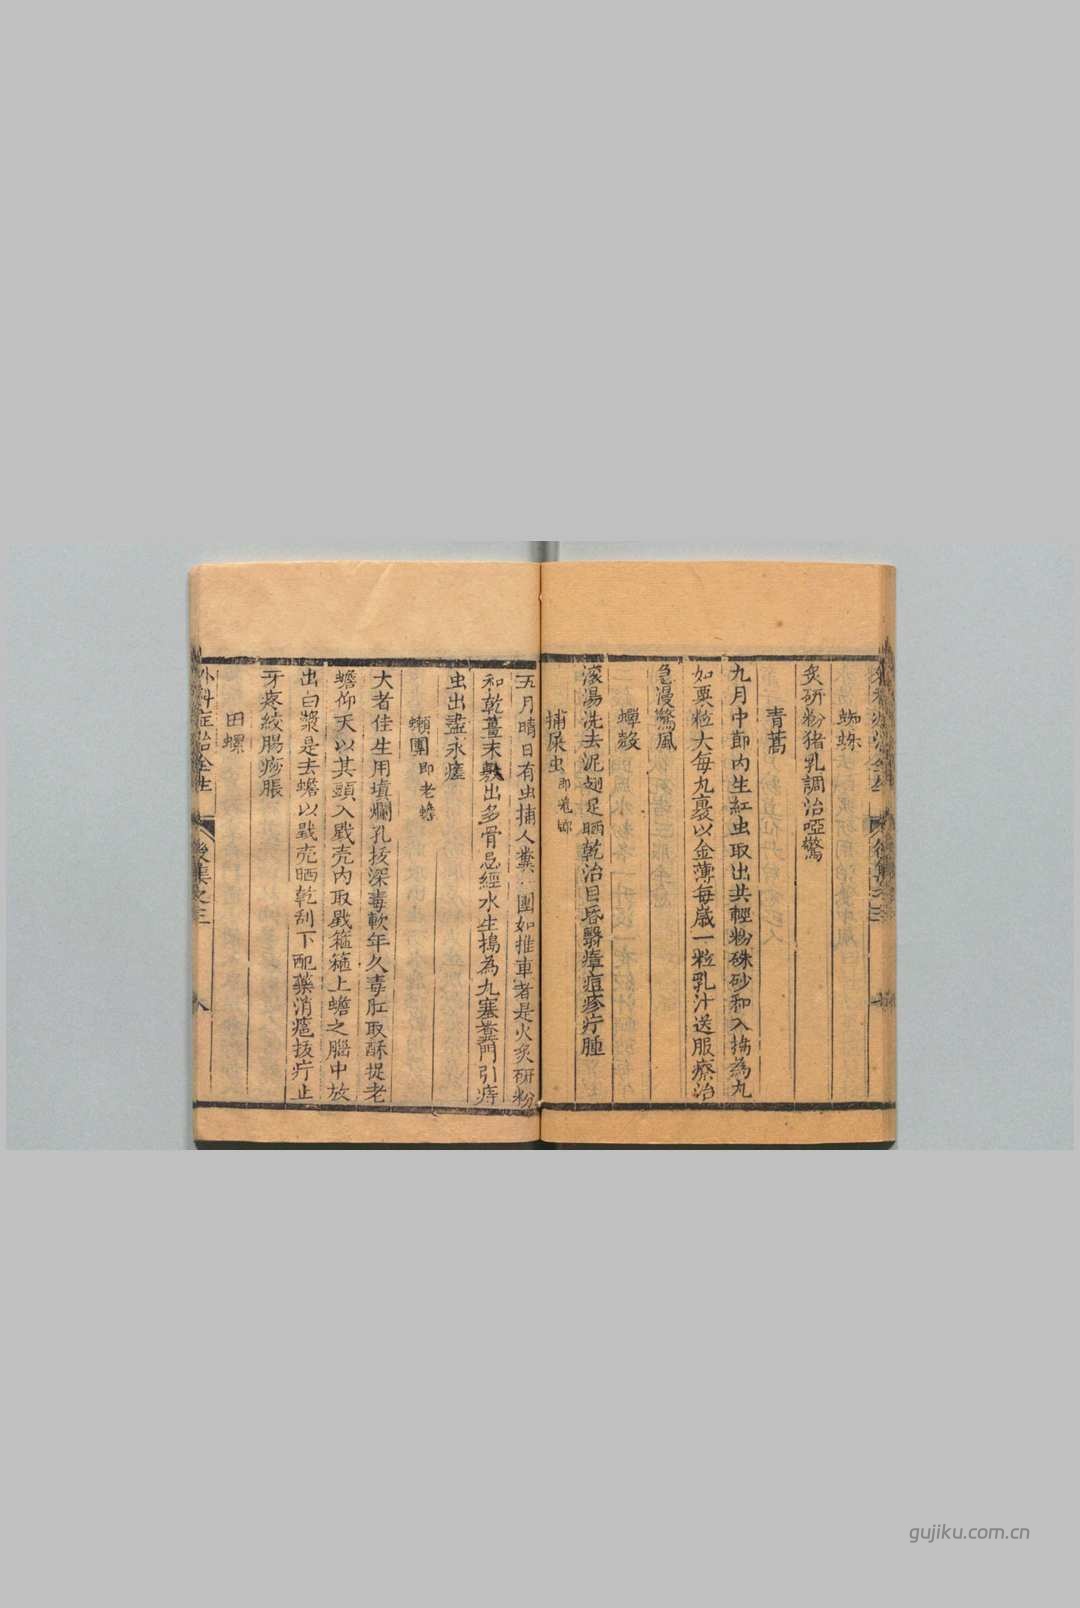 蜘蛛
炙研粉猪乳調治啞驚
青蒿
九月中節内生紅虫取出共輕粉硃砂和入搗為丸
如粟粒大每丸裹以金薄每歲一粒乳汁送服療治
急漫驚風
蟬殼
滾湯洗去泥翅足晒乾治目昏翳瘴痘疹疔腫
捕屎虫
五月晴日有虫捕人糞一團如推車者是火炙研粉
和乾薑末敷出多骨忌經水生搗為丸塞糞門引痔
虫出盡永瘥
癩團即老蟾
大者佳生用填爛孔拔深毒軟年久毒肛取酥捉老
蟾仰天以其頭入戥壳内取戥箍箍上蟾之腦中放
出白漿是去蟾以戥壳晒乾刮下配藥消瘡拔疔止
牙疼絞腸痧脹
田螺
外科症治全生
後集之三
八
gujiku.com.cn